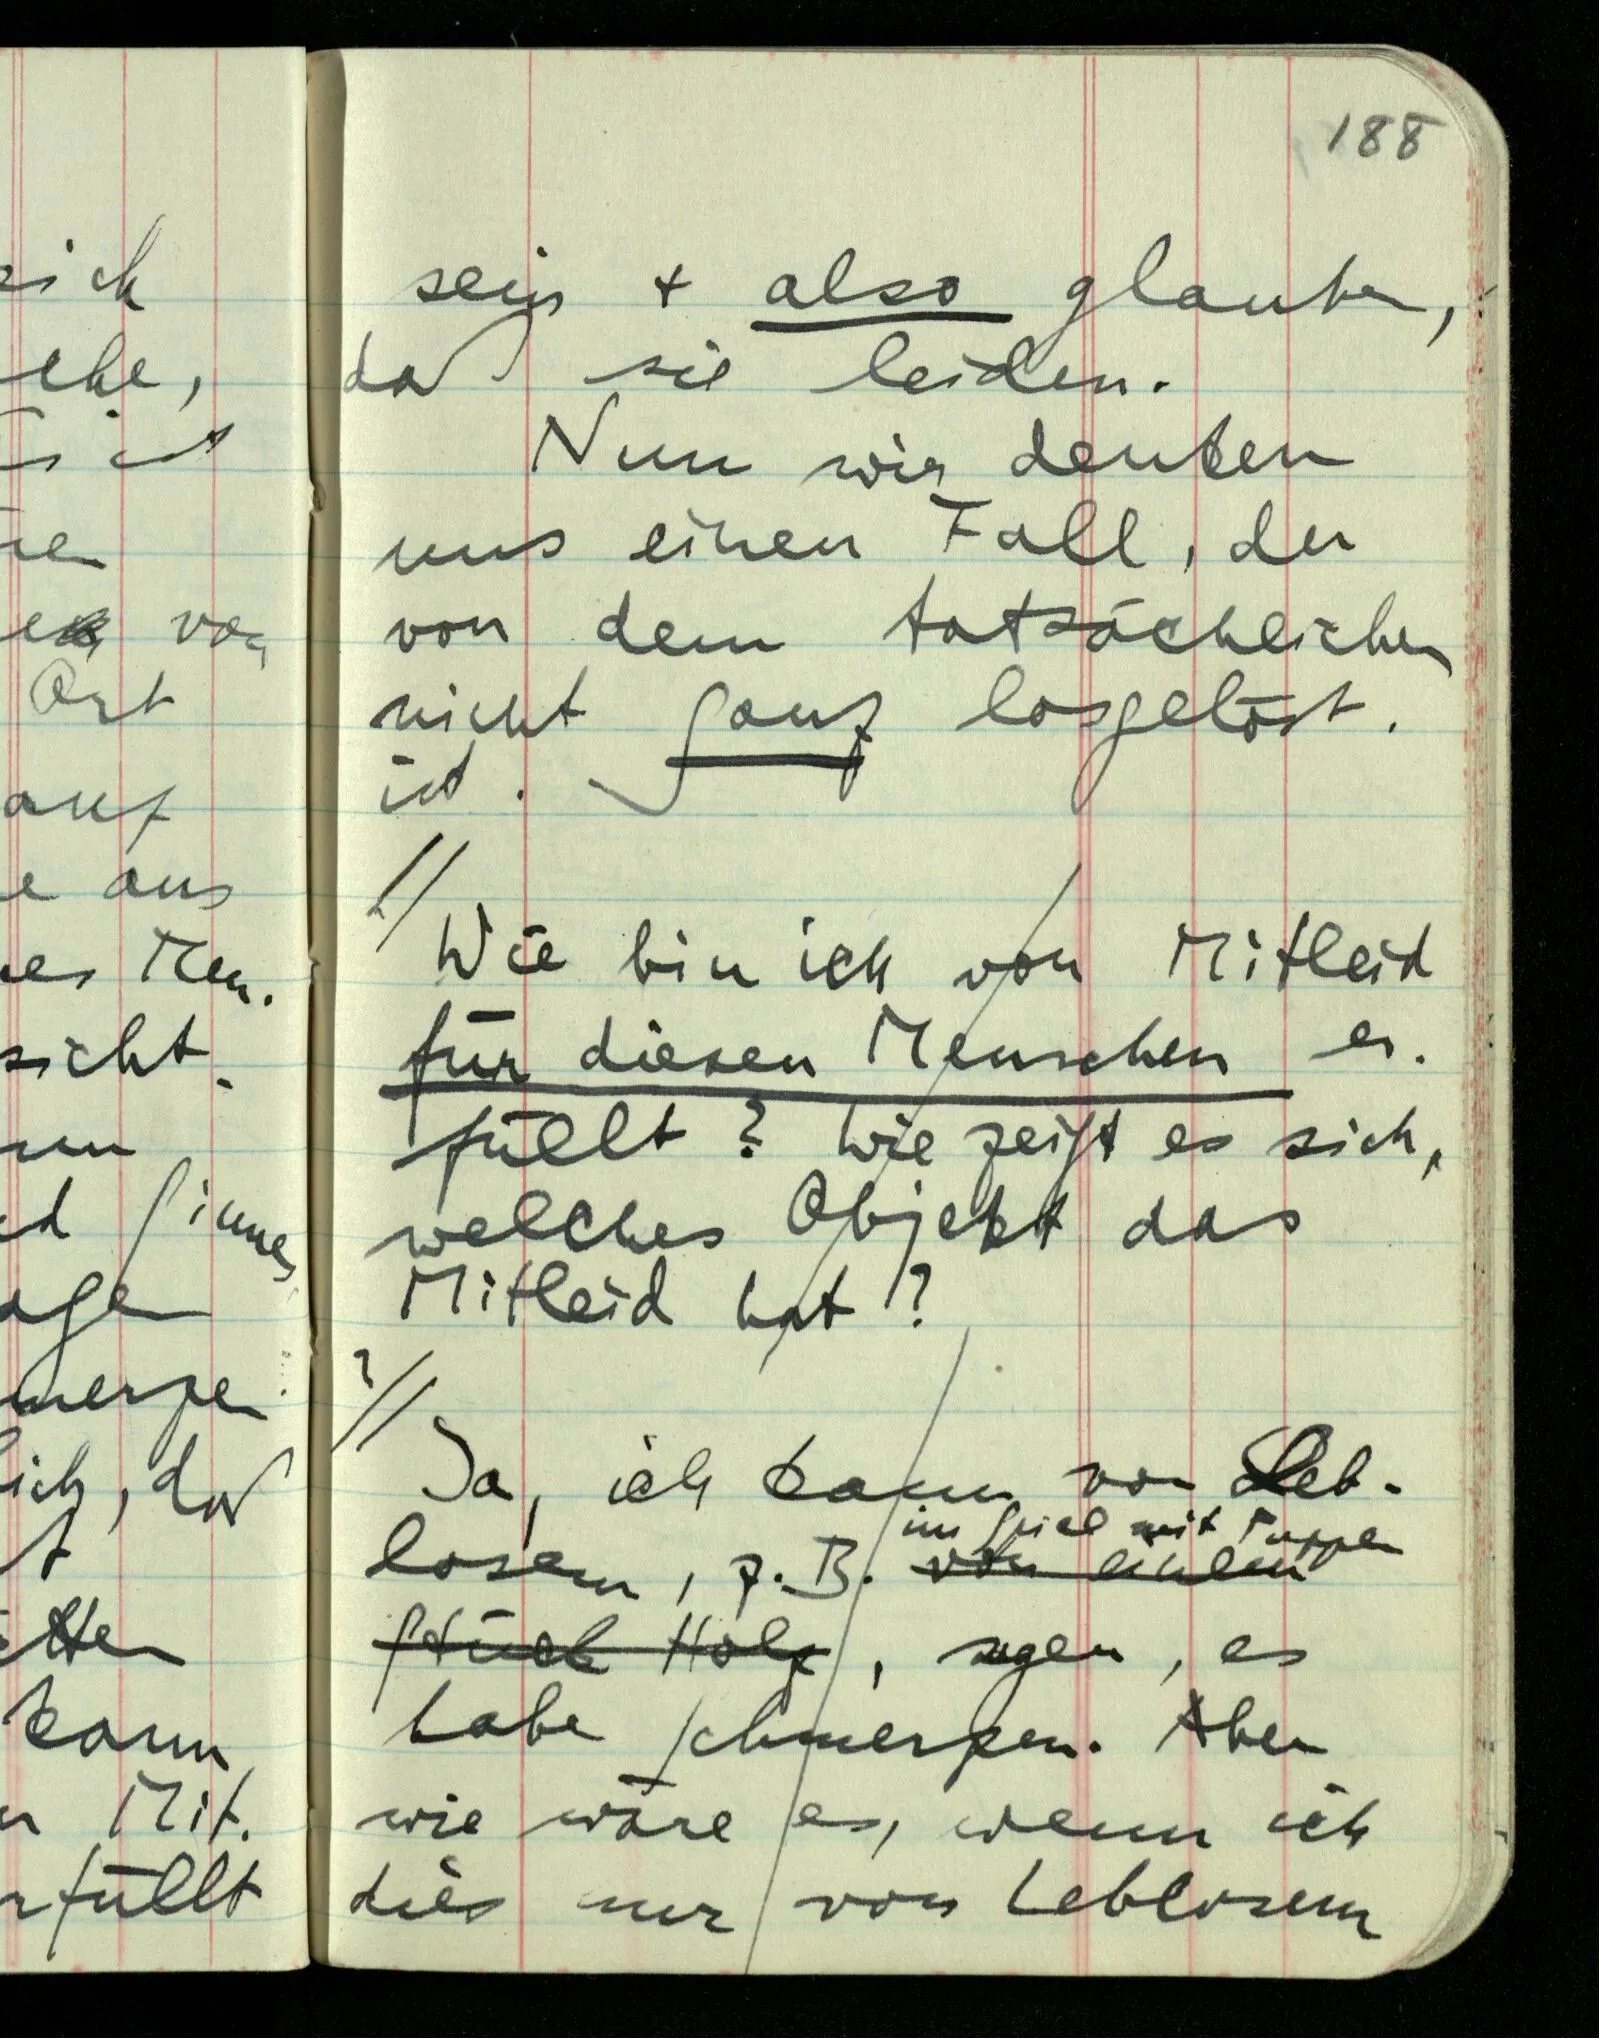 188
sich
ehe,
von
Ort
auf
e aus
nes Men-
sicht.
agen
merzen
lich, daß
kann
Mit-
rfüllt
sein + also glauben,
daß sie leiden.
Nun wir denken
uns einen Fall, der
von dem tatsächlichen
nicht ganz losgelöst.
ist.
//
Wie bin ich von Mitleid
für diesen Menschen er-
füllt? Wie zeigt es sich,
welches Objekt das
Mitleid hat?
? //
Ja, ich kann von Leb-
im Spiel mit Puppen
losem, z.B. von einem
Stück Holz, sagen, es
habe Schmerzen. Aber
wie wäre es, wenn ich
dies nur von Leblosem